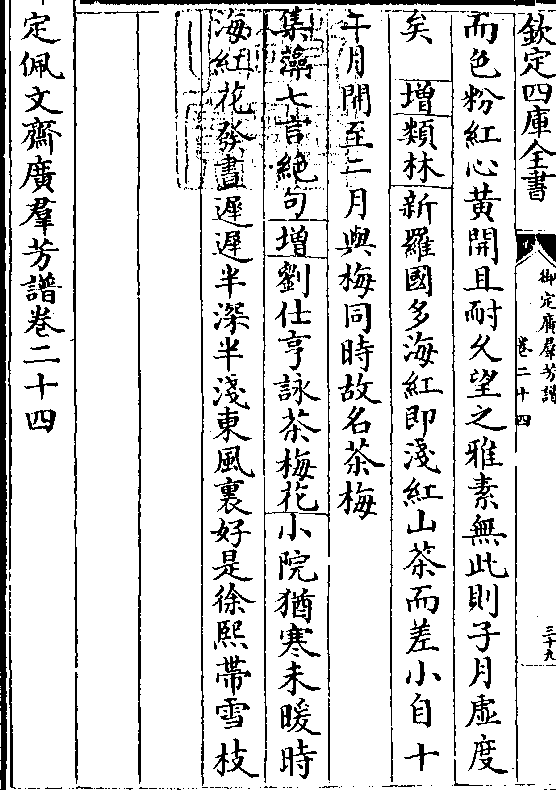 欽定四庫全書
御定廣羣芳譜
卷二十四
三十九
而色粉紅心黄開且耐久望之雅素無此則子月虛度
矣　增類林新羅國多海紅即淺紅山茶而差小自十
二月開至二月與梅同時故名茶梅
集藻七言絶句增劉仕亨詠茶梅花小院猶寒未暖時
海紅花發晝遲遲半深半淺東風裏好是徐熙帶雪枝
定佩文齋廣羣芳譜卷二十四